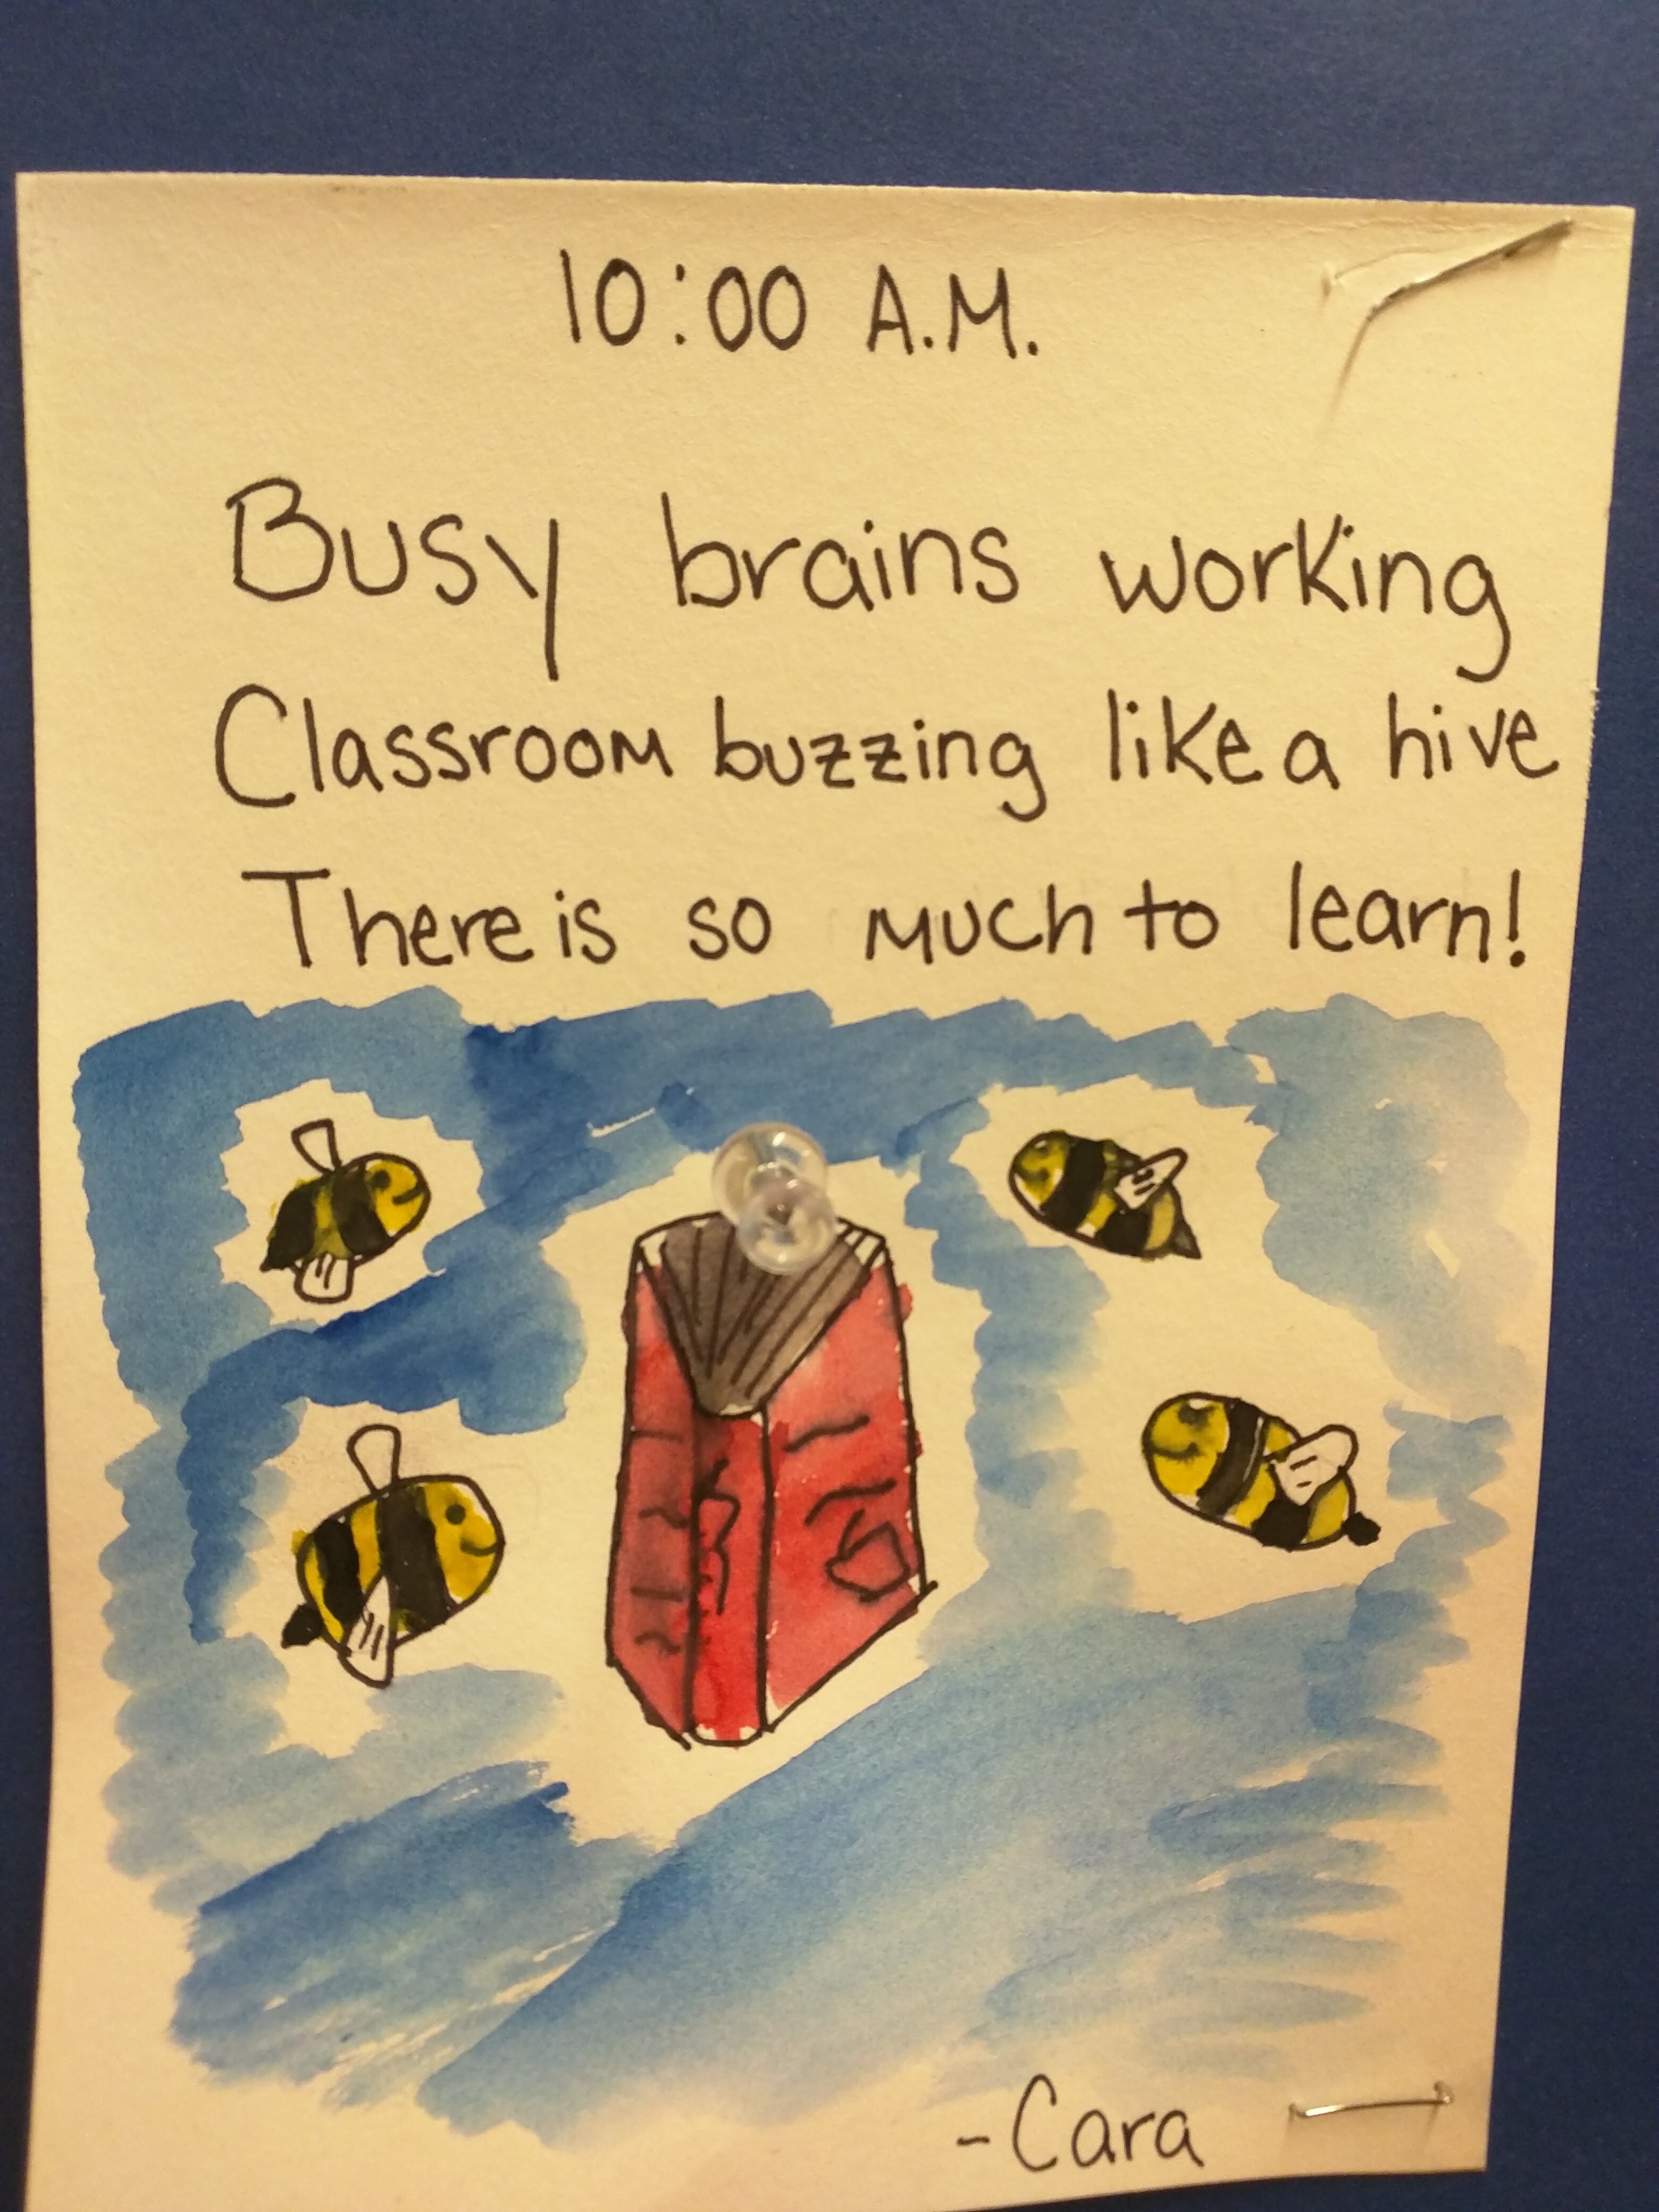 10:00 A.M.
Busy brains working
Classroom buzzing like a hive
There is so much to learn!
-Cara